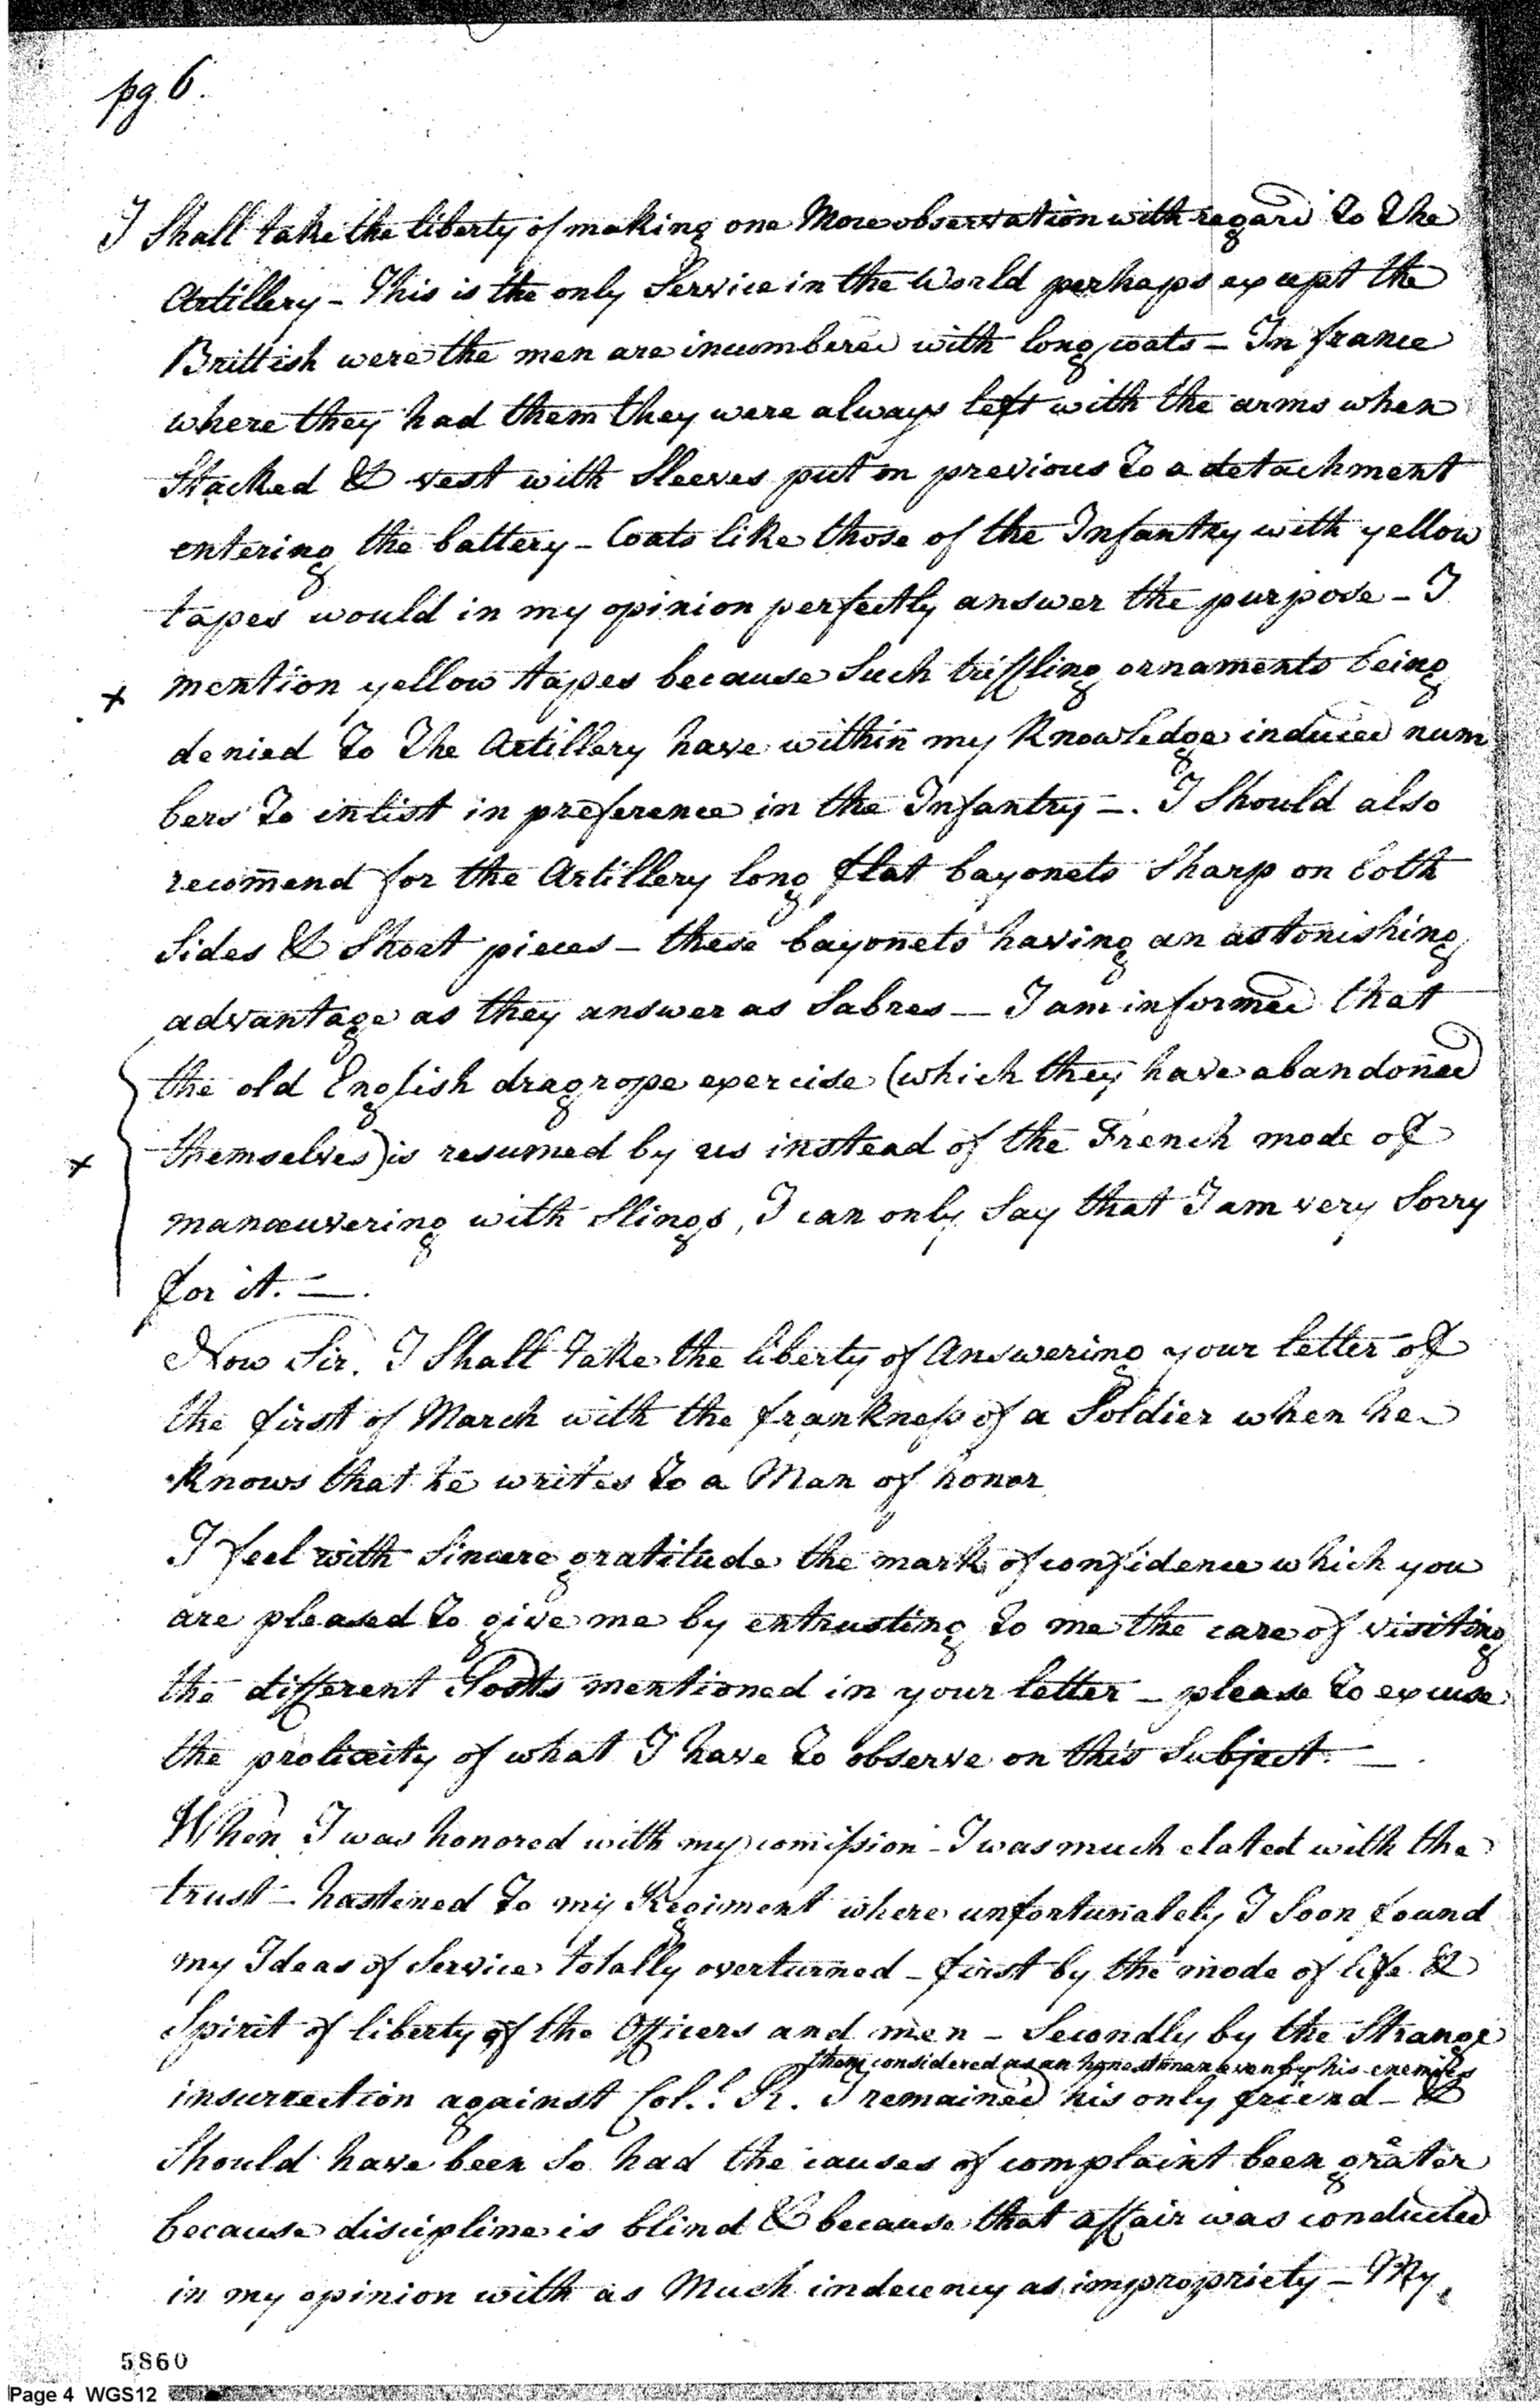 pg 6.
I Shall take the liberty of making one More observation with regard to the
Artillery - This is the only Service in the World perhaps except the
Brittish were the men are incumbered with long coats - In france
where they had them they were always left with the arms when
Stacked & vest with Sleeves put on previous to a detachment
entering the battery - Coats like those of the Infantry with yellow
tapes would in my opinion perfectly answer the purpose - I
x mention yellow tapes because Such triffling ornaments being
denied to the Artillery have within my Knowledge induced num
bers to inlist in preference in the Infantry -. I Should also
recomend for the Artillery long flat bayonets Sharp on both
Sides & Short pieces - these bayonets having an astonishing
advantage as they answer as Sabres - I am informed that
the old English dragrope exercise (which they have abandoned
x themselves) is resumed by us instead of the French mode of
manœuvering with Slings, I can only Say that I am very Sorry
for it. -.
Now Sir. I Shall Take the liberty of Answering your letter of
the first of March with the frankness of a Soldier when he
Knows that he writes to a Man of honor
I feel with Sincere gratitude the mark of confidence which you
are pleased to give me by entrusting to me the care of visiting
the different Posts mentioned in your letter - please to excuse
the prolixity of what I have to observe on this Subject. -.
When I was honored with my comission - I was much elated with the
trust - hastened to my Regiment where unfortunately I Soon found
my Ideas of Service totally overturned - first by the mode of life &
Spirit of liberty of the Officers and men - Secondly by the Strange
then considered as an honest man even by his enemies
insurrection against Col. R. I remained his only friend - &
Should have been So had the causes of complaint been grater
because discipline is blind & because that affair was conducted
in my opinion with as Much indecency as impropriety - My
5860
Page 4 WGS12